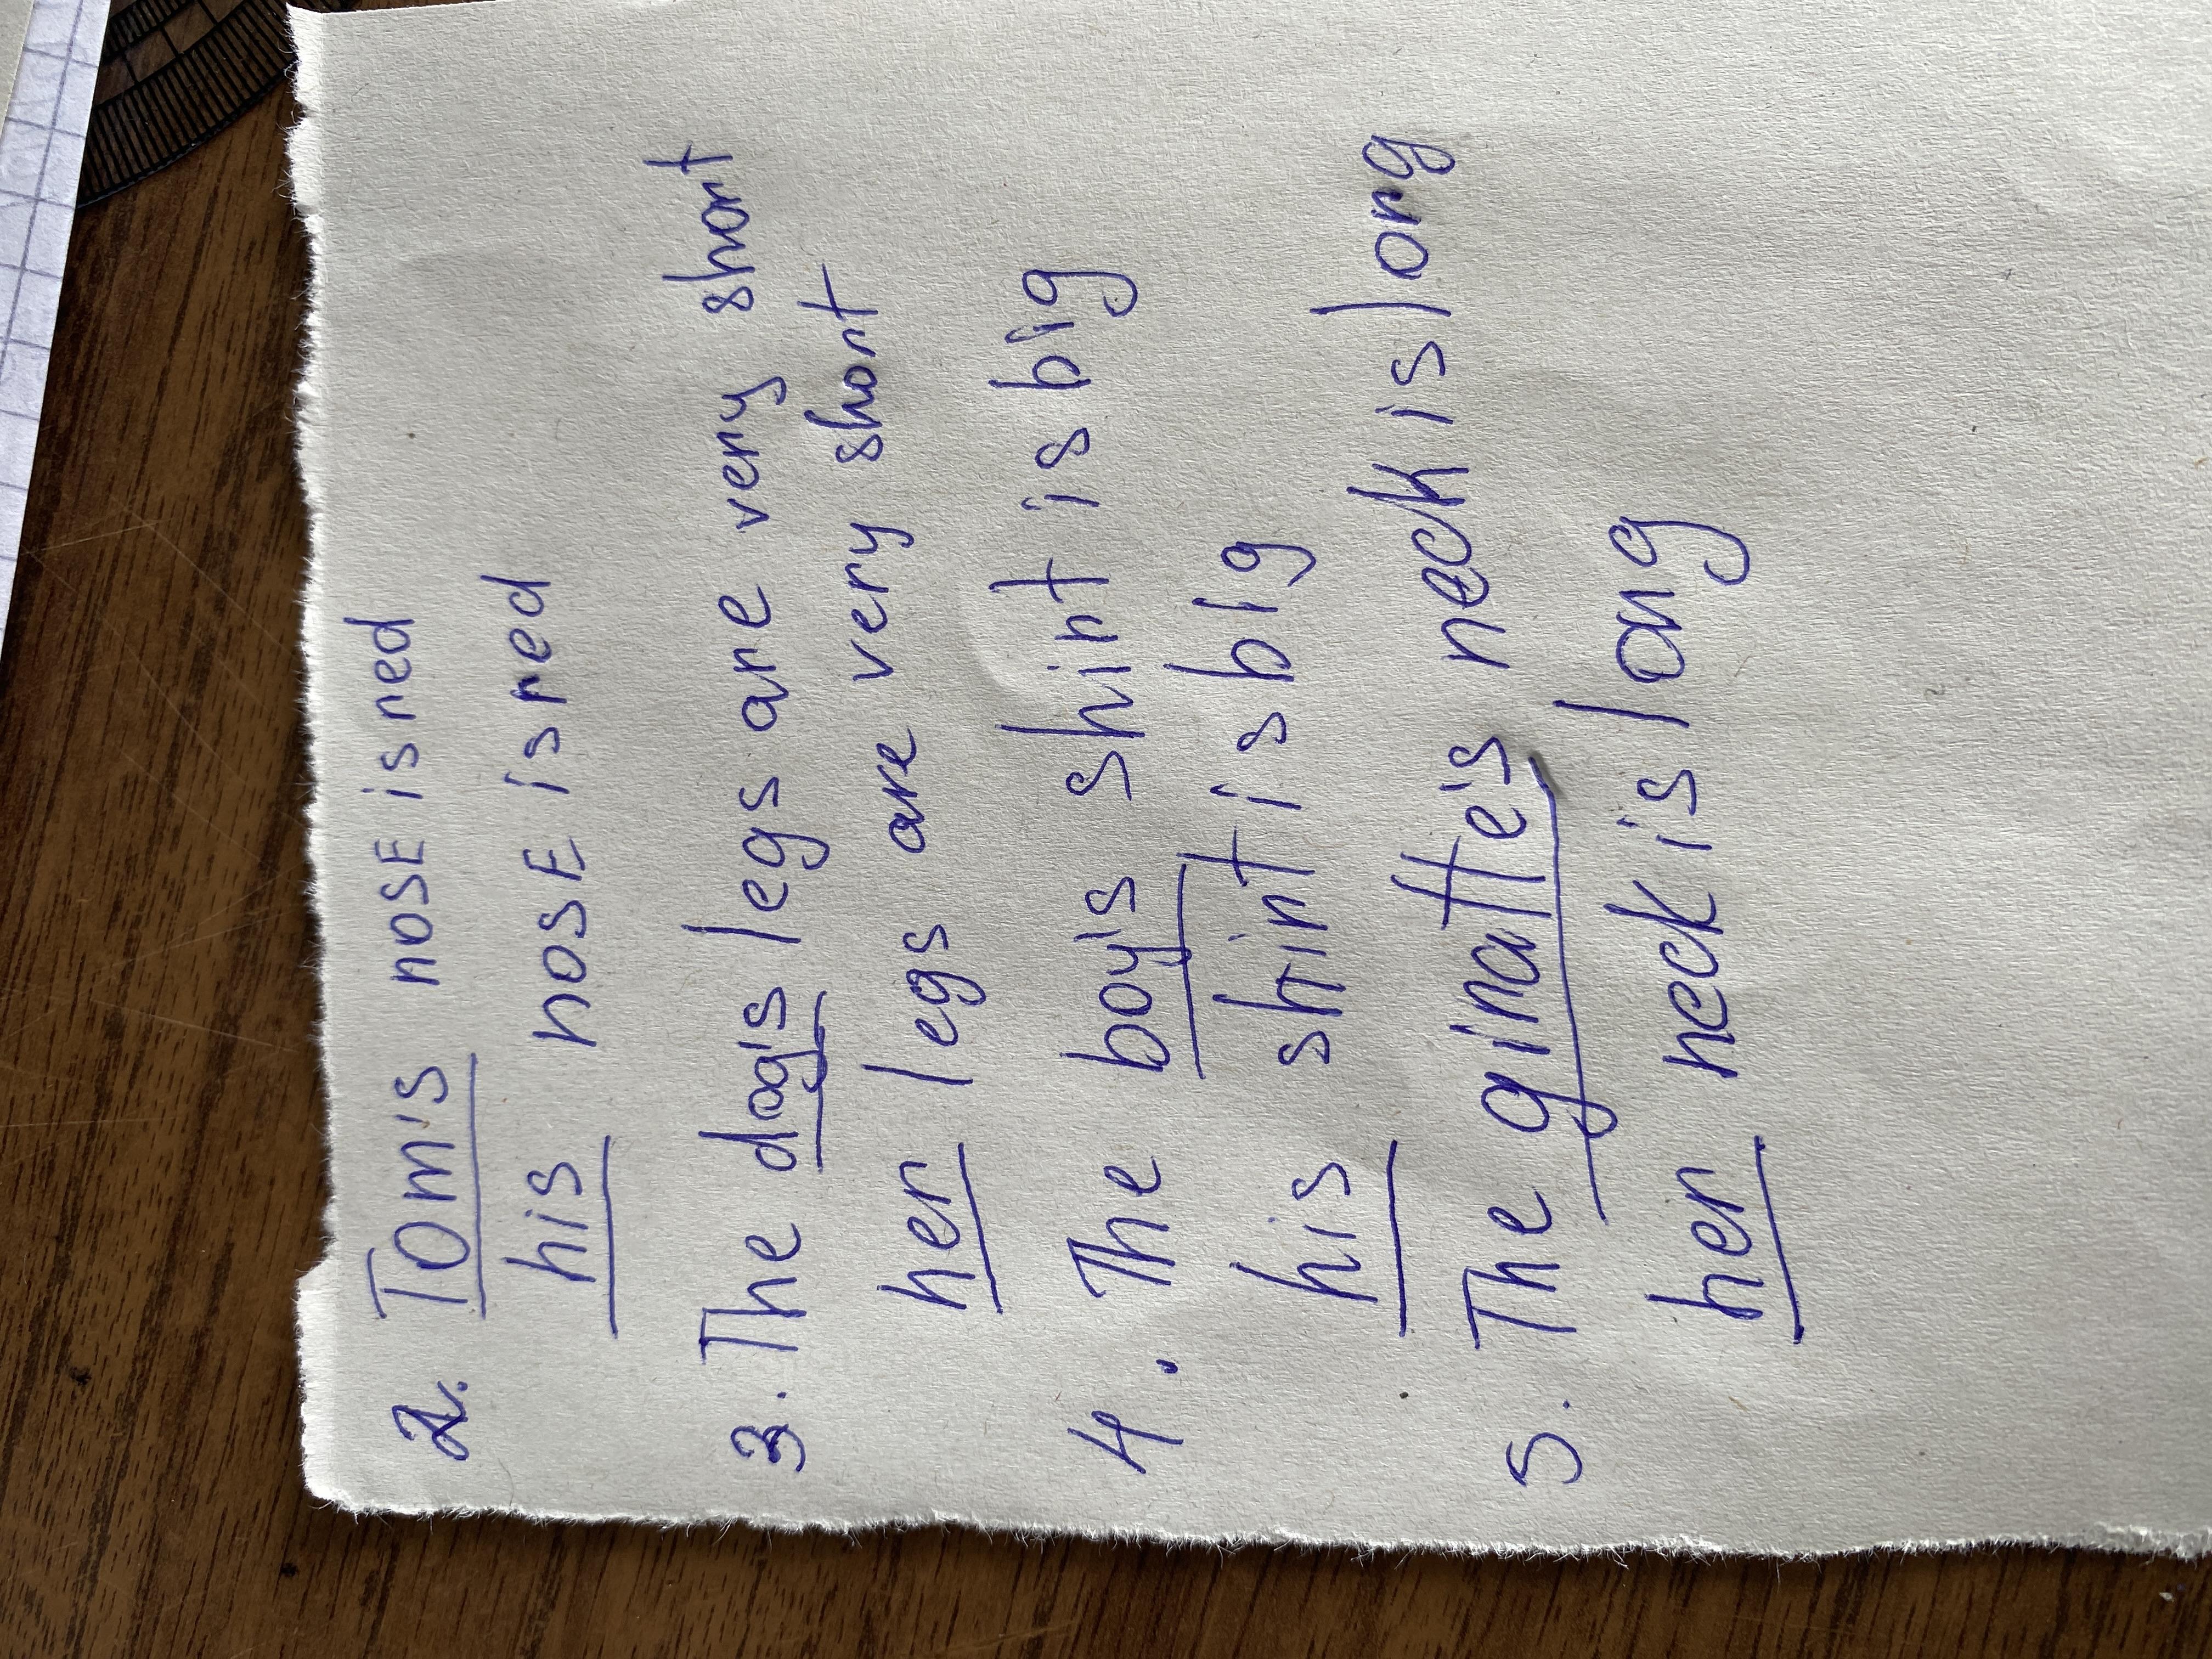 2. Tom's nosE is red
his nosE is red
3. The dog's legs are very short
her legs are very short
4. The boy's shirt is big
his shirt is big
5. The giraffe's neck is long
her neck is long